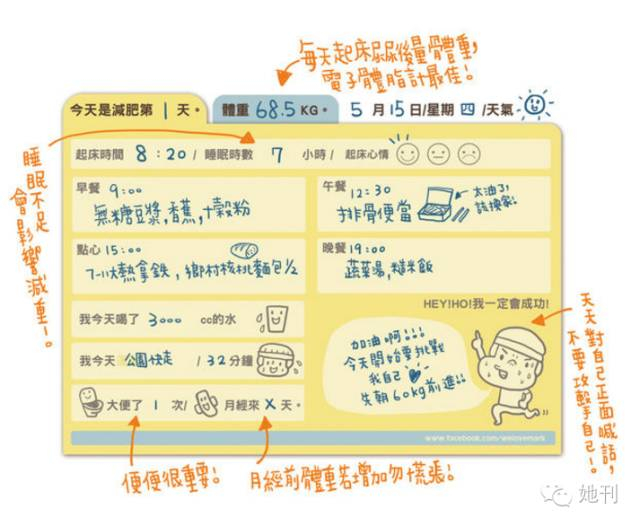 每天起床尿尿後量體重,
電子體脂計最佳!
今天是減肥第 1 天。
體重 68.5 KG。
5 月 15 日/星期 四 /天氣
起床時間 8:20 / 睡眠時數 7 小時 / 起床心情
睡眠不足
會影響減重!。
早餐 9:00
無糖豆漿,香蕉,十穀粉
午餐 12:30
排骨便當
太油了!
該換家!
點心 15:00
7-11大熱拿鐵,鄉村核桃麵包1/2
晚餐 19:00
蔬菜湯,糙米飯
我今天喝了 3000 cc的水
HEY!HO!我一定會成功!
我今天 公園快走 / 32 分鐘
加油啊!!!
今天開始要挑戰
我自己
先朝60kg前進!!
天天對自己正面喊話,
不要攻擊自己!。
大便了 1 次/ 月經來 X 天。
www.facebook.com/welovemark
便便很重要!
月經前體重若增加勿慌張!
她刊